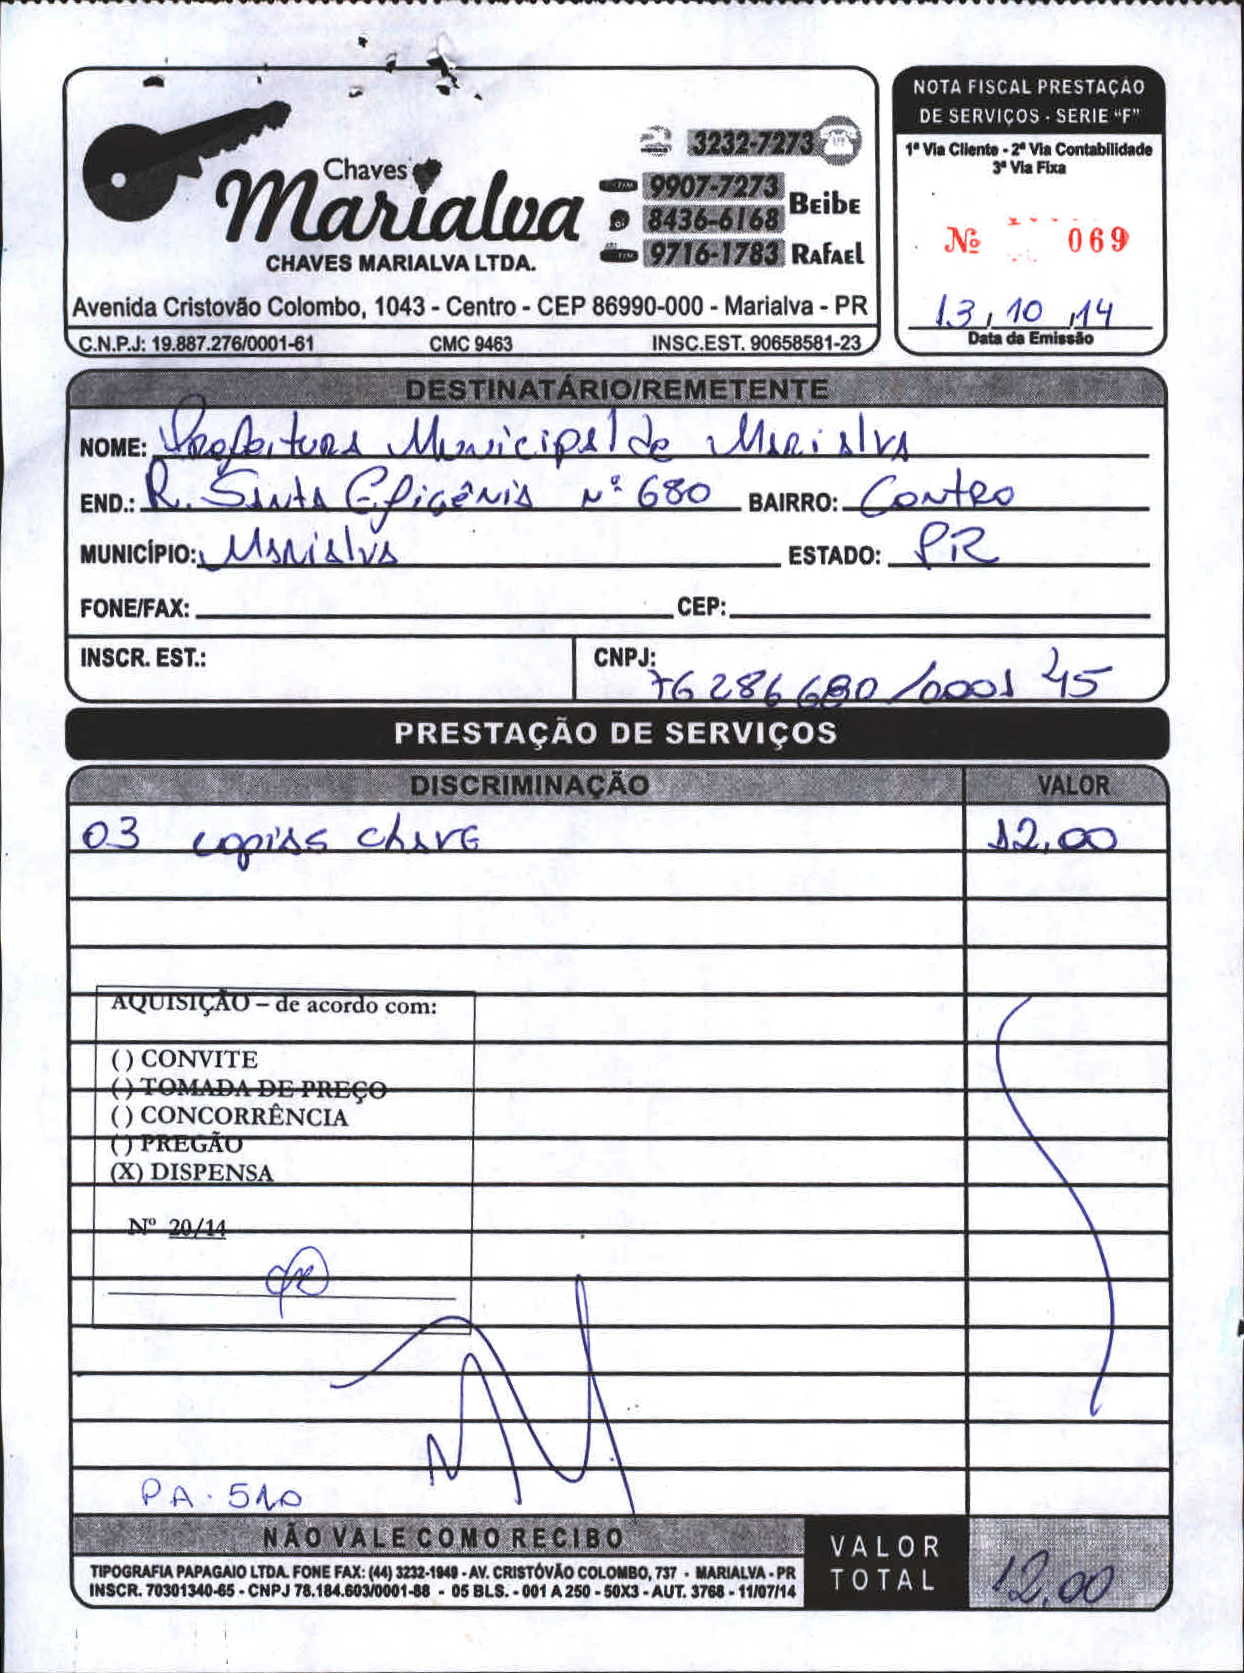 Chaves
Marialva
CHAVES MARIALVA LTDA.
3232-7273
9907-7273
8436-6168 Beibe
9716-1783 Rafael
Avenida Cristovão Colombo, 1043 - Centro - CEP 86990-000 - Marialva - PR
C.N.P.J: 19.887.276/0001-61 CMC 9463 INSC.EST. 90658581-23
NOTA FISCAL PRESTAÇÃO
DE SERVIÇOS - SERIE "F"
1ª Via Cliente - 2ª Via Contabilidade
3ª Via Fixa
Nº 069
13, 10, 14
Data da Emissão
DESTINATÁRIO/REMETENTE
NOME: Prefeitura Municipal de Marialva
END.: R. Santa Efigênia Nº 680 BAIRRO: Centro
MUNICÍPIO: Marialva ESTADO: PR
FONE/FAX: CEP:
INSCR. EST.: CNPJ: 76 286 680/0001 45
PRESTAÇÃO DE SERVIÇOS
DISCRIMINAÇÃO VALOR
03 copias chave 12,00
AQUISIÇÃO – de acordo com:
( ) CONVITE
( ) TOMADA DE PREÇO
( ) CONCORRÊNCIA
( ) PREGÃO
(X) DISPENSA
Nº 20/14
PA. 510
NÃO VALE COMO RECIBO
TIPOGRAFIA PAPAGAIO LTDA. FONE FAX: (44) 3232-1949 - AV. CRISTÓVÃO COLOMBO, 737 - MARIALVA - PR
INSCR. 70301340-65 - CNPJ 78.184.603/0001-88 - 05 BLS. - 001 A 250 - 50X3 - AUT. 3768 - 11/07/14
VALOR
TOTAL 12,00